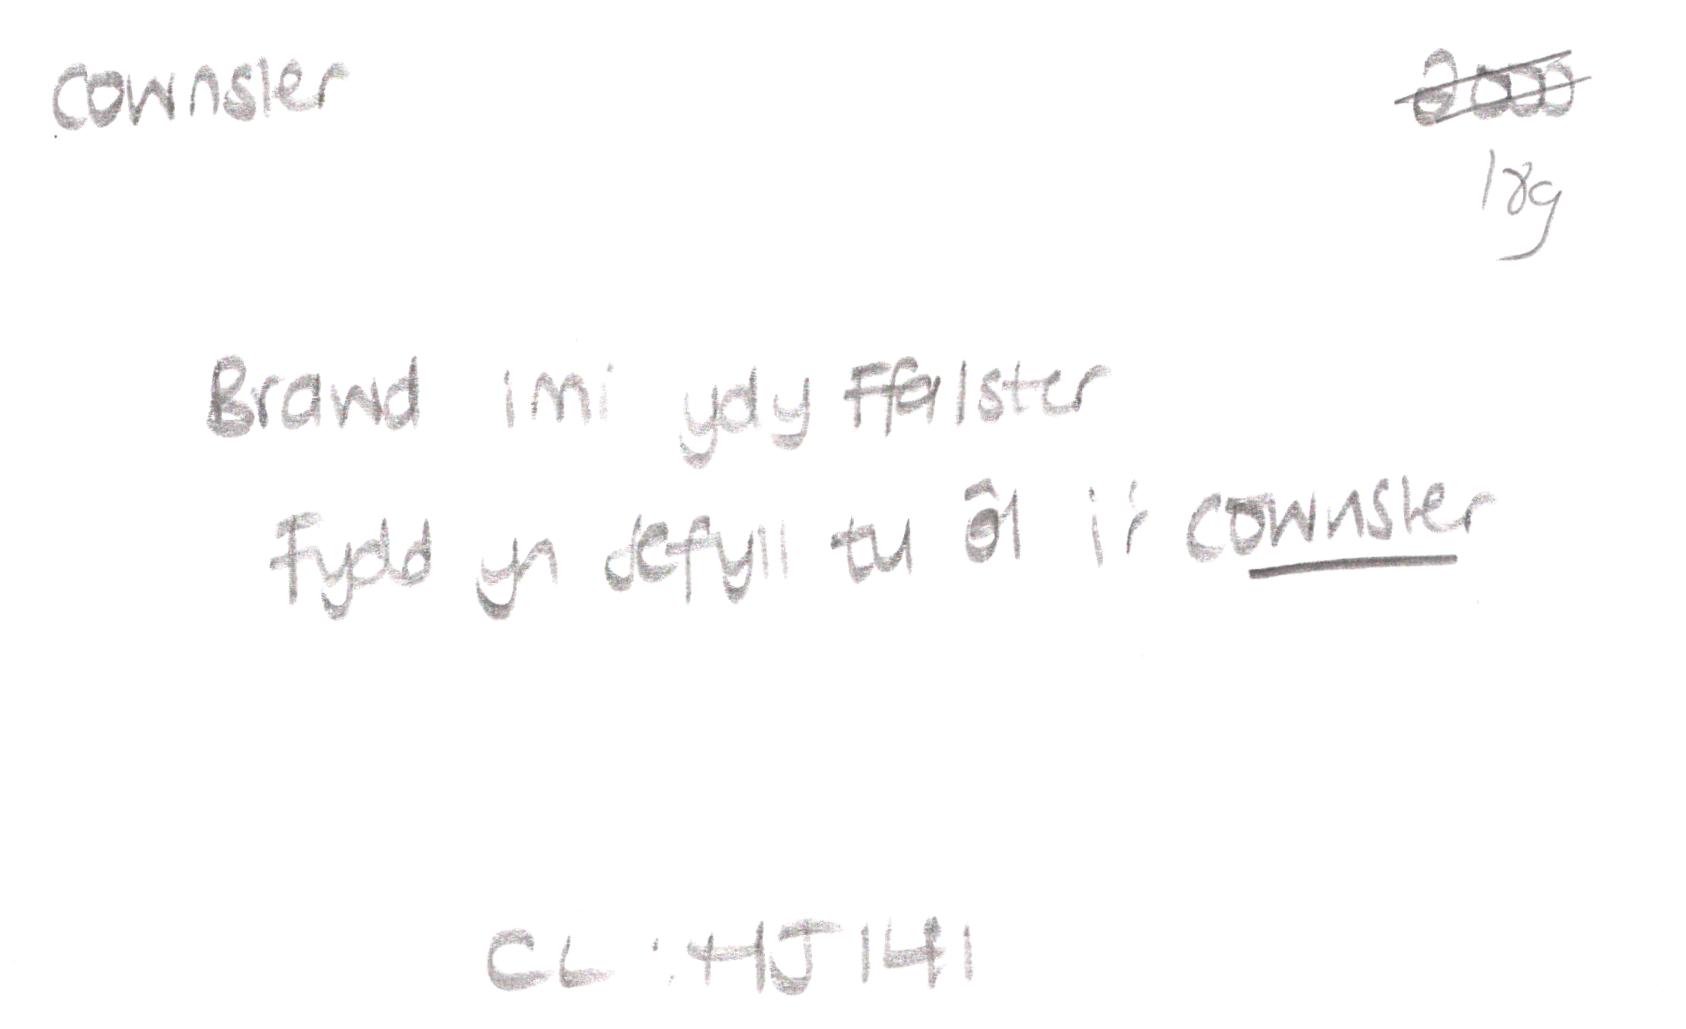 cownsler
2000
18g
Brawd imi ydy Ffalster
Fydd yn defyll tu ôl i'r cownsler
CL : HJ 141